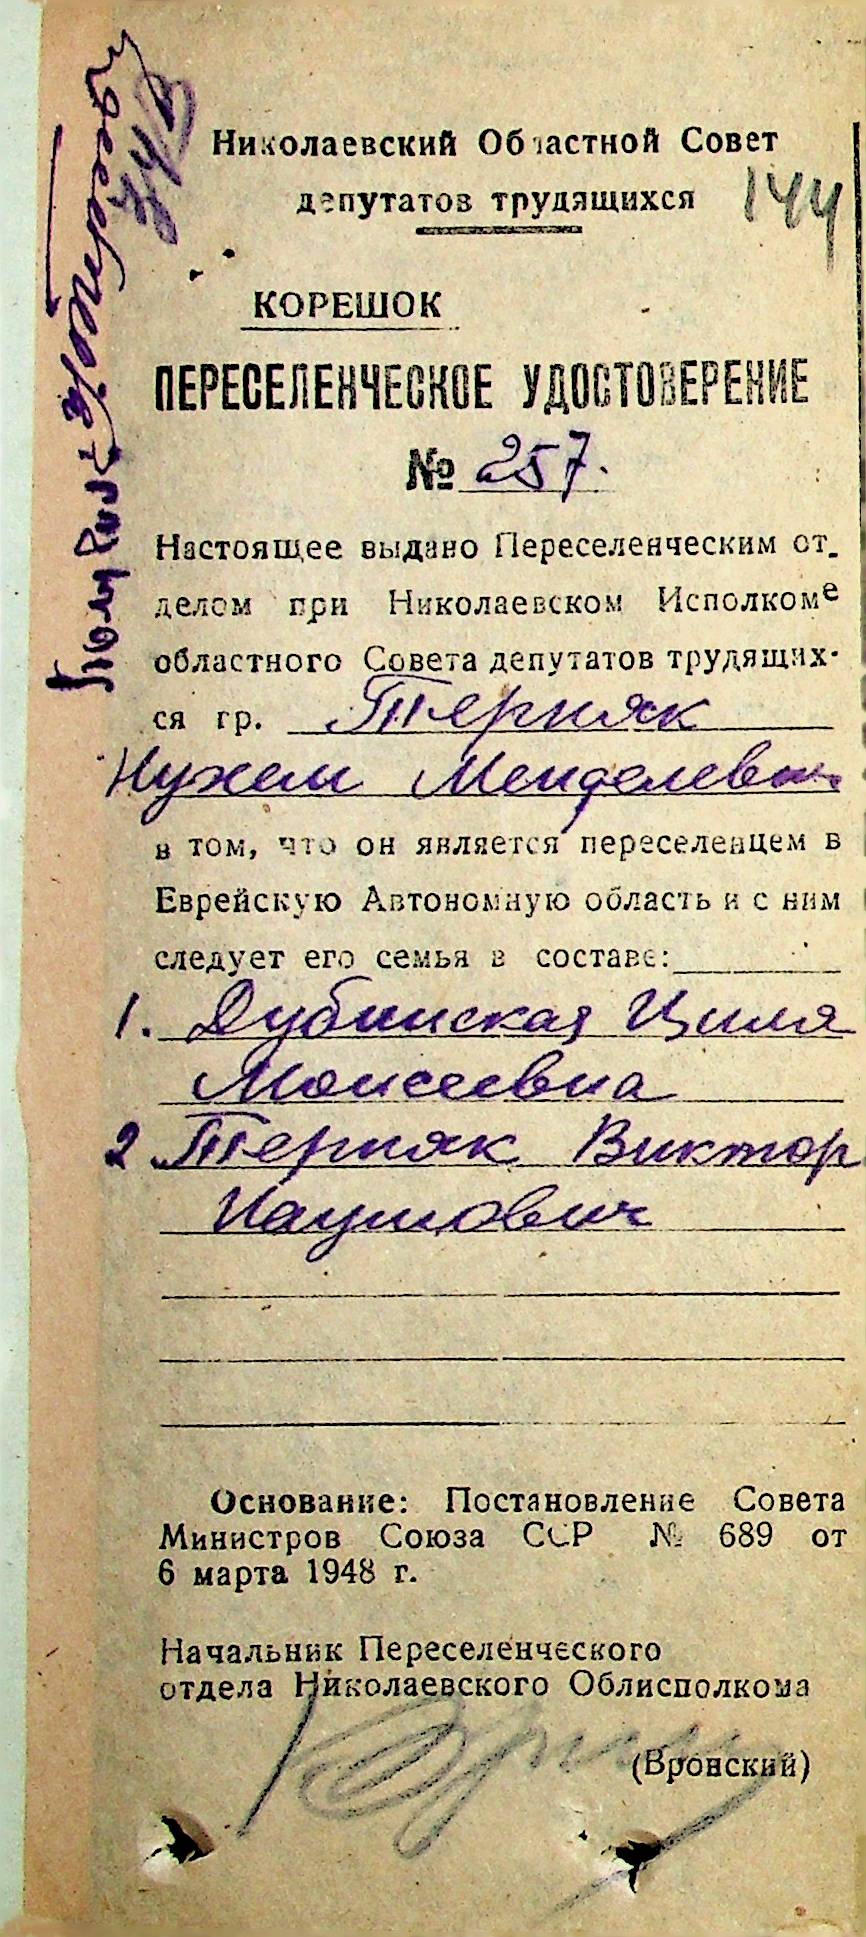 Николаевский Областной Совет
депутатов трудящихся
144
КОРЕШОК
ПЕРЕСЕЛЕНЧЕСКОЕ УДОСТОВЕРЕНИЕ
№ 257.
Настоящее выдано Переселенческим от-
делом при Николаевском Исполкоме
областного Совета депутатов трудящих-
ся гр. Терняк
Нухем Менделевич
в том, что он является переселенцем в
Еврейскую Автономную область и с ним
следует его семья в составе:
1. Дубинская Циля
Моисеевна
2 Терняк Виктор
Наумович
Основание: Постановление Совета
Министров Союза ССР № 689 от
6 марта 1948 г.
Начальник Переселенческого
отдела Николаевского Облисполкома
(Вронский)